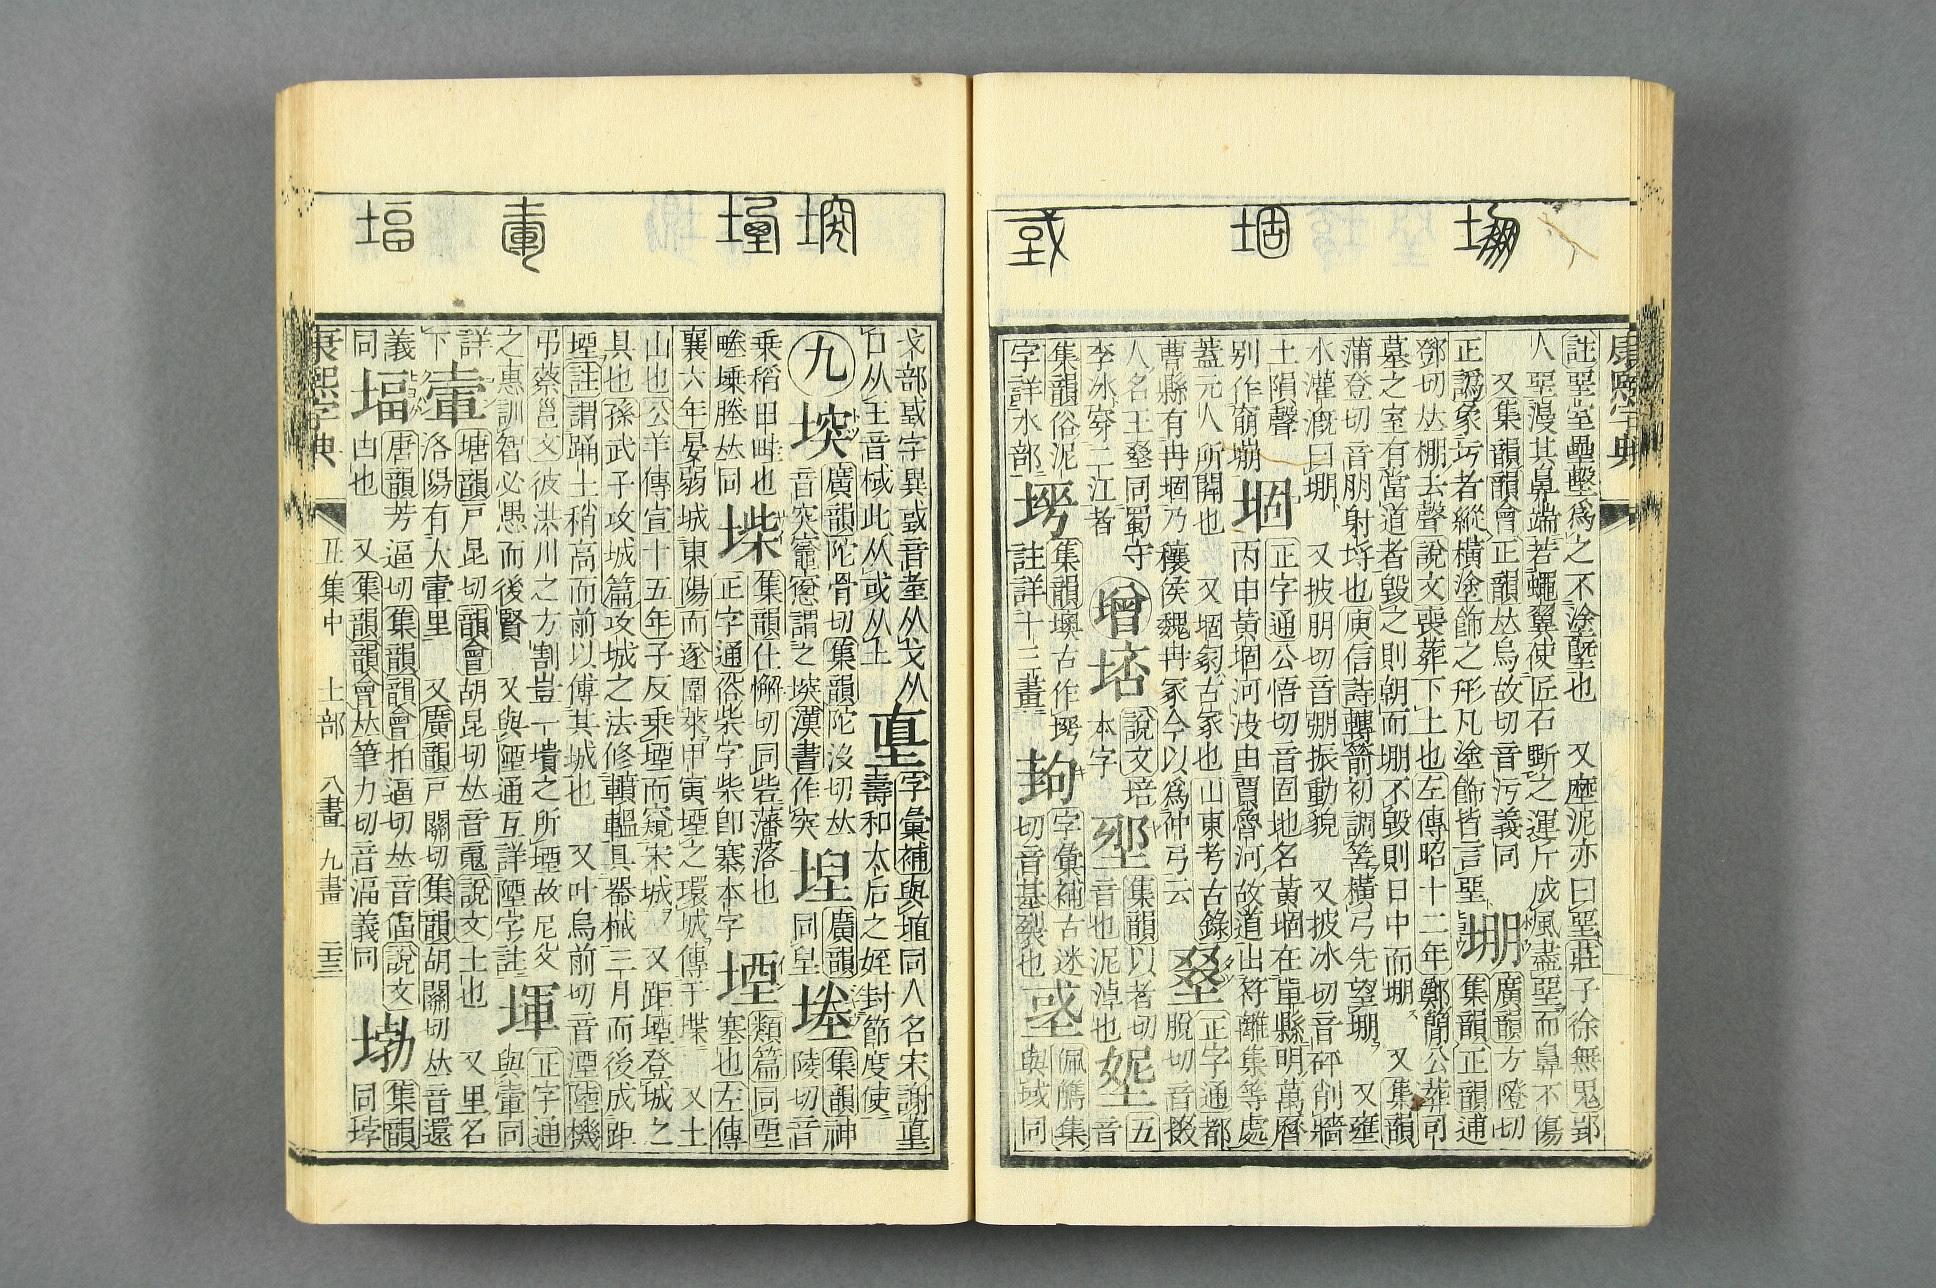 堋
堌
康熙字典
註堊室壘墼爲之不塗塈也 又塵泥亦曰堊莊子徐無鬼郢
人堊漫其鼻端若蠅翼使匠石斲之運斤成風盡堊而鼻不傷
又集韻韻會正韻𠀤烏故切音污義同 堋 廣韻方隥切
正譌象丂者縱橫塗飾之形凡塗飾皆言堊 集韻正韻逋
鄧切𠀤棚去聲說文喪葬下土也左傳昭十二年鄭簡公葬司
墓之室有當道者毀之則朝而堋不毀則日中而堋 又集韻
蒲登切音朋射埒也庾信詩轉箭初調筈橫弓先望堋 又壅
水灌漑曰堋 又披朋切音弸振動貌 又披冰切音砰削牆
土隕聲 堌 正字通公悟切音固地名黃堌在單縣明萬曆
別作崩塴 丙申黃堌河決由賈魯河故道出符離集等處
蓋元人所開也 又堌冢古冢也山東考古錄 正字通都
曹縣有冉堌乃穰侯魏冉冢今以爲仲弓云 脫切音掇
人名王同蜀守 增 說文培 集韻以者切 五
李冰穿二江者 本字 音也泥淖也 音
集韻俗泥 集韻堧古作 字彙補古迷 佩觿集
字詳水部 註詳十二畫 切音基裂也 與域同
戈部字異音臺从戈从 字彙補與埴同人名宋謝
口从王音棫此从或从土 壽和太后之姪封節度使
九 堗 廣韻陀骨切集韻陀沒切𠀤 廣韻 集韻神
音突竈窻謂之堗漢書作突 同皇 陵切音
乗稻田畦也 集韻仕懈切同砦藩落也 類篇同垔
塍𠀤同 正字通俗柴字柴卽寨本字 堙 塞也左傳
襄六年晏弱城東陽而遂圍萊甲寅堙之環城傅于堞 又土
山也公羊傳宣十五年子反乗堙而窺宋城 又距堙登城之
具也孫武子攻城篇攻城之法修轒轀具器械三月而後成距
堙註謂踊土稍高而前以傅其城也 又叶烏前切音湮陸機
弔蔡邕文彼洪川之方割豈一墤之所堙故尼父 正字通
之惠訓智必愚而後賢 又與陻通互詳陻字註 堚 與䡣同
詳 塘韻戸昆切韻會胡昆切𠀤音䰟說文土也 又里名
下 洛陽有大里 又廣韻戸關切集韻胡關切𠀤音還
義 堛 唐韻芳逼切集韻韻會拍逼切𠀤音愊說文 集韻
同 凷也 又集韻韻會𠀤筆力切音湢義同 同垺
康熙字典 丑集中 土部 八畫 九畫